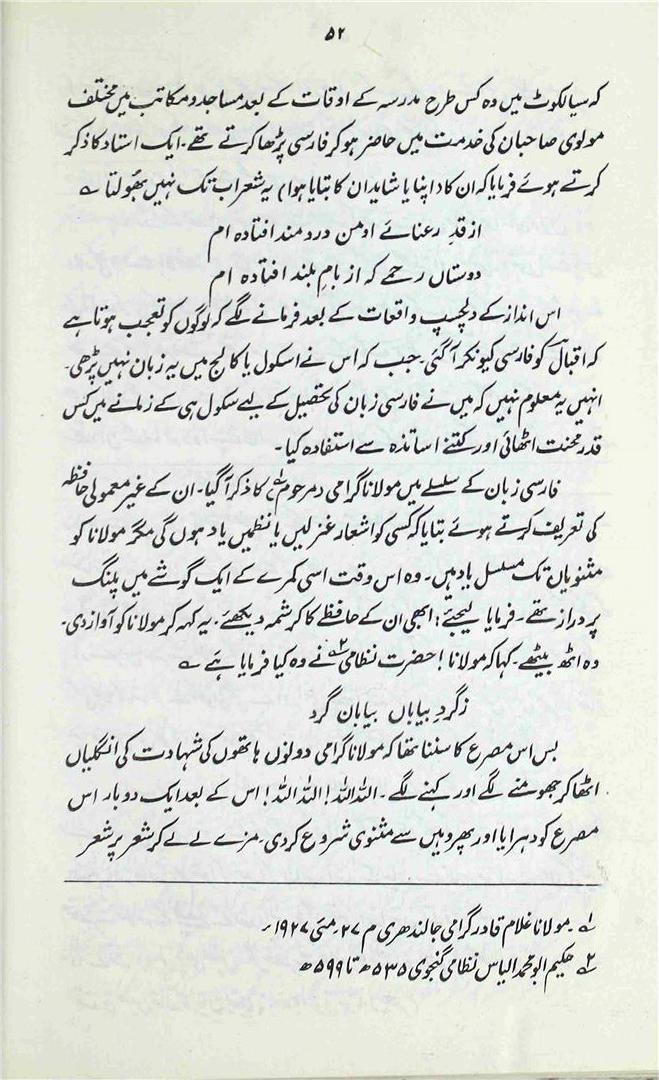 ۵۲
کہ سیالکوٹ میں وہ کس طرح مدرسہ کے اوقات کے بعد مساجد و مکاتب میں مختلف
مولوی صاحبان کی خدمت میں حاضر ہو کر فارسی پڑھا کرتے تھے۔ ایک استاد کا ذکر
کرتے ہوئے فرمایا کہ ان کا (اپنا یا شاید ان کا بتایا ہوا) یہ شعر اب تک نہیں بھولتا ؎
از قدِ رعنائے او من دردمند افتادہ ام
دوستاں رحمے کہ از بامِ بلند افتادہ ام
اس انداز کے دلچسپ واقعات کے بعد فرمانے لگے کہ لوگوں کو تعجب ہوتا ہے
کہ اقبال کو فارسی کیونکر آ گئی۔ جب کہ اس نے اسکول یا کالج میں یہ زبان نہیں پڑھی۔
انہیں یہ معلوم نہیں کہ میں نے فارسی زبان کی تحصیل کے لیے سکول ہی کے زمانے میں کس
قدر محنت اٹھائی اور کتنے اساتذہ سے استفادہ کیا۔
فارسی زبان کے سلسلے میں مولانا گرامی (مرحوم)۱ کا ذکر آ گیا۔ ان کے غیر معمولی حافظہ
کی تعریف کرتے ہوئے بتایا کہ کسی کو اشعار غزلیں یا نظمیں یاد ہوں گی مگر مولانا کو
مثنویاں تک مسلسل یاد ہیں۔ وہ اس وقت اسی کمرے کے ایک گوشے میں پلنگ
پر دراز تھے۔ فرمایا لیجئے! ابھی ان کے حافظے کا کرشمہ دیکھئے۔ یہ کہہ کر مولانا کو آواز دی۔
وہ اٹھ بیٹھے۔ کہا کہ مولانا! حضرت نظامی۲ نے وہ کیا فرمایا ہے ؎
زگردِ بیاباں بیابان گرد
بس اس مصرع کا سننا تھا کہ مولانا گرامی دونوں ہاتھوں کی شہادت کی انگلیاں
اٹھا کر جھومنے لگے اور کہنے لگے۔ اللہ اللہ! اللہ اللہ! اس کے بعد ایک دو بار اس
مصرع کو دہرایا اور پھر وہیں سے مثنوی شروع کر دی۔ مزے لے لے کر شعر پر شعر
۱؎ ۔ مولانا غلام قادر گرامی جالندھری م ۲۷۔ مئی ۱۹۲۷ء
۲؎ حکیم ابو محمد الیاس نظامی گنجوی ۵۳۵ھ تا ۵۹۹ھ